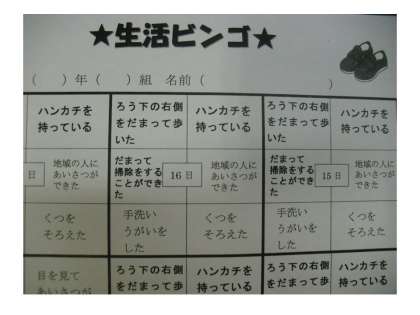 ★生活ビンゴ★
(　　)年(　　)組　名前(　　　　　　　)
ハンカチを
持っている
ろう下の右側
をだまって歩
いた
ハンカチを
持っている
ろう下の右側
をだまって歩
いた
ハンカチを
持っている
日
地域の人に
あいさつが
できた
だまって
掃除をする
ことができ
た
16日
地域の人に
あいさつが
できた
だまって
掃除をする
ことができ
た
15日
地域の人に
あいさつが
できた
くつを
そろえた
手洗い
うがいを
した
くつを
そろえた
手洗い
うがいを
した
くつを
そろえた
目を見て
あいさつが
ろう下の右側
をだまって歩
ハンカチを
持っている
ろう下の右側
をだまって歩
ハンカチを
持っている